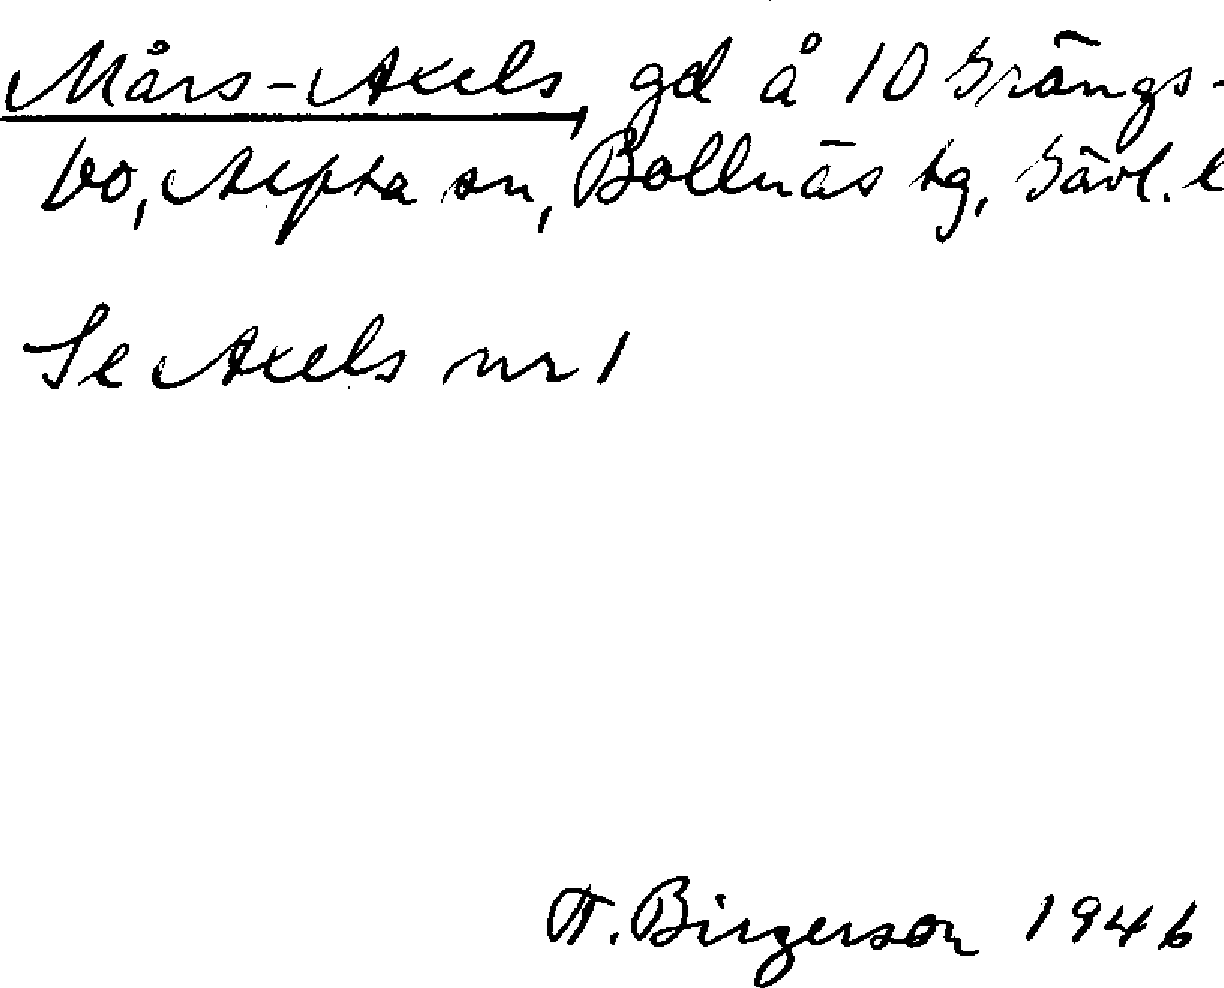 Mårs-Axels, gd å 10 Grängs-
bo, Alfta sn, Bollnäs tg, Gävl. l
Se Axels nr 1
T. Birgerson 1946